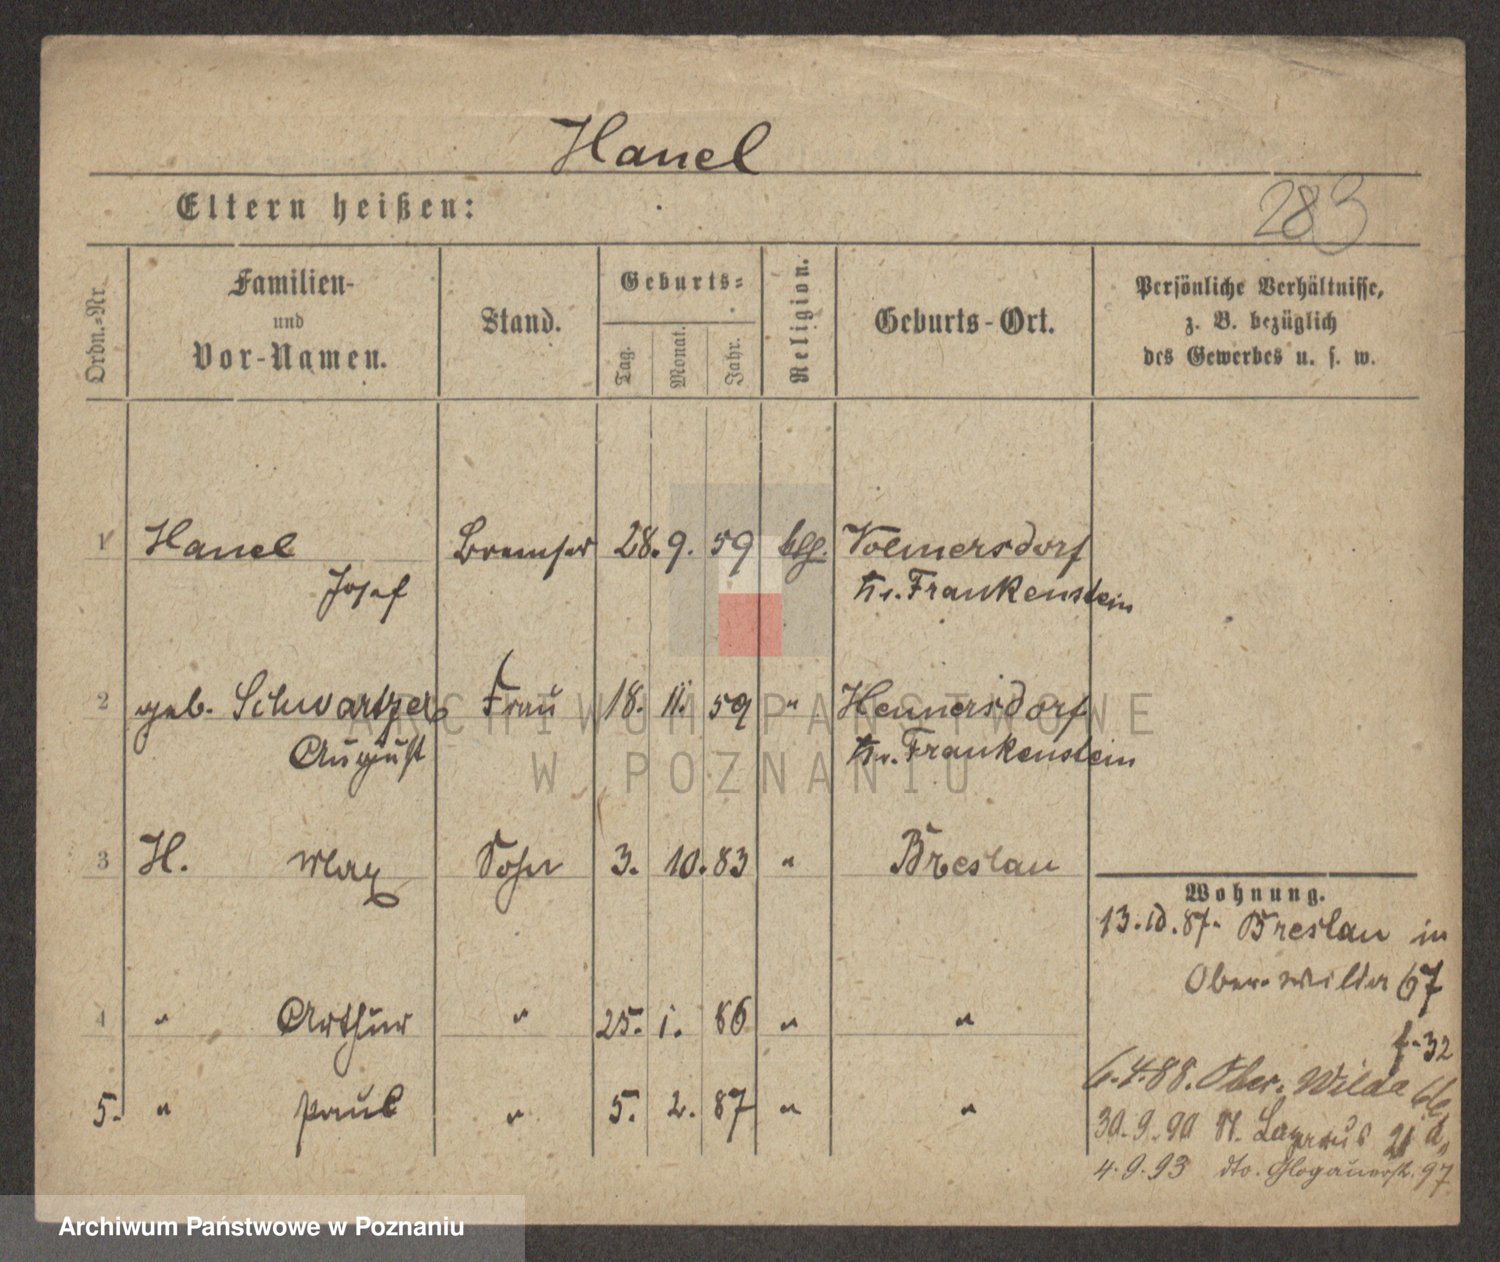 Hanel
Eltern heißen:
283
Ordn.-Nr.
Familien-
und
Vor-Namen.
Stand.
Geburts-
Tag.
Monat.
Jahr.
Religion.
Geburts-Ort.
Persönliche Verhältnisse,
z. B. bezüglich
des Gewerbes u. s. w.
1 Hanel Bremser 28. 9. 59 ktl. Volmersdorf
Josef Kr. Frankenstein
2 geb. Schwartzer Frau 18. 11. 59 " Hennersdorf
August Kr. Frankenstein
3 H. Max Sohn 3. 10. 83 " Breslau
Wohnung.
13. 10. 87. Breslau in
Ober-Wilda 67
4 " Arthur " 25. 1. 86 " "
f. 32
6. 4. 88. Ober-Wilda
5. " Paul " 5. 2. 87 " "
30. 9. 90 St. Lazarus
4. 9. 93 dto. Glogauerstr. 97
ARCHIWUM PAŃSTWOWE
W POZNANIU
Archiwum Państwowe w Poznaniu